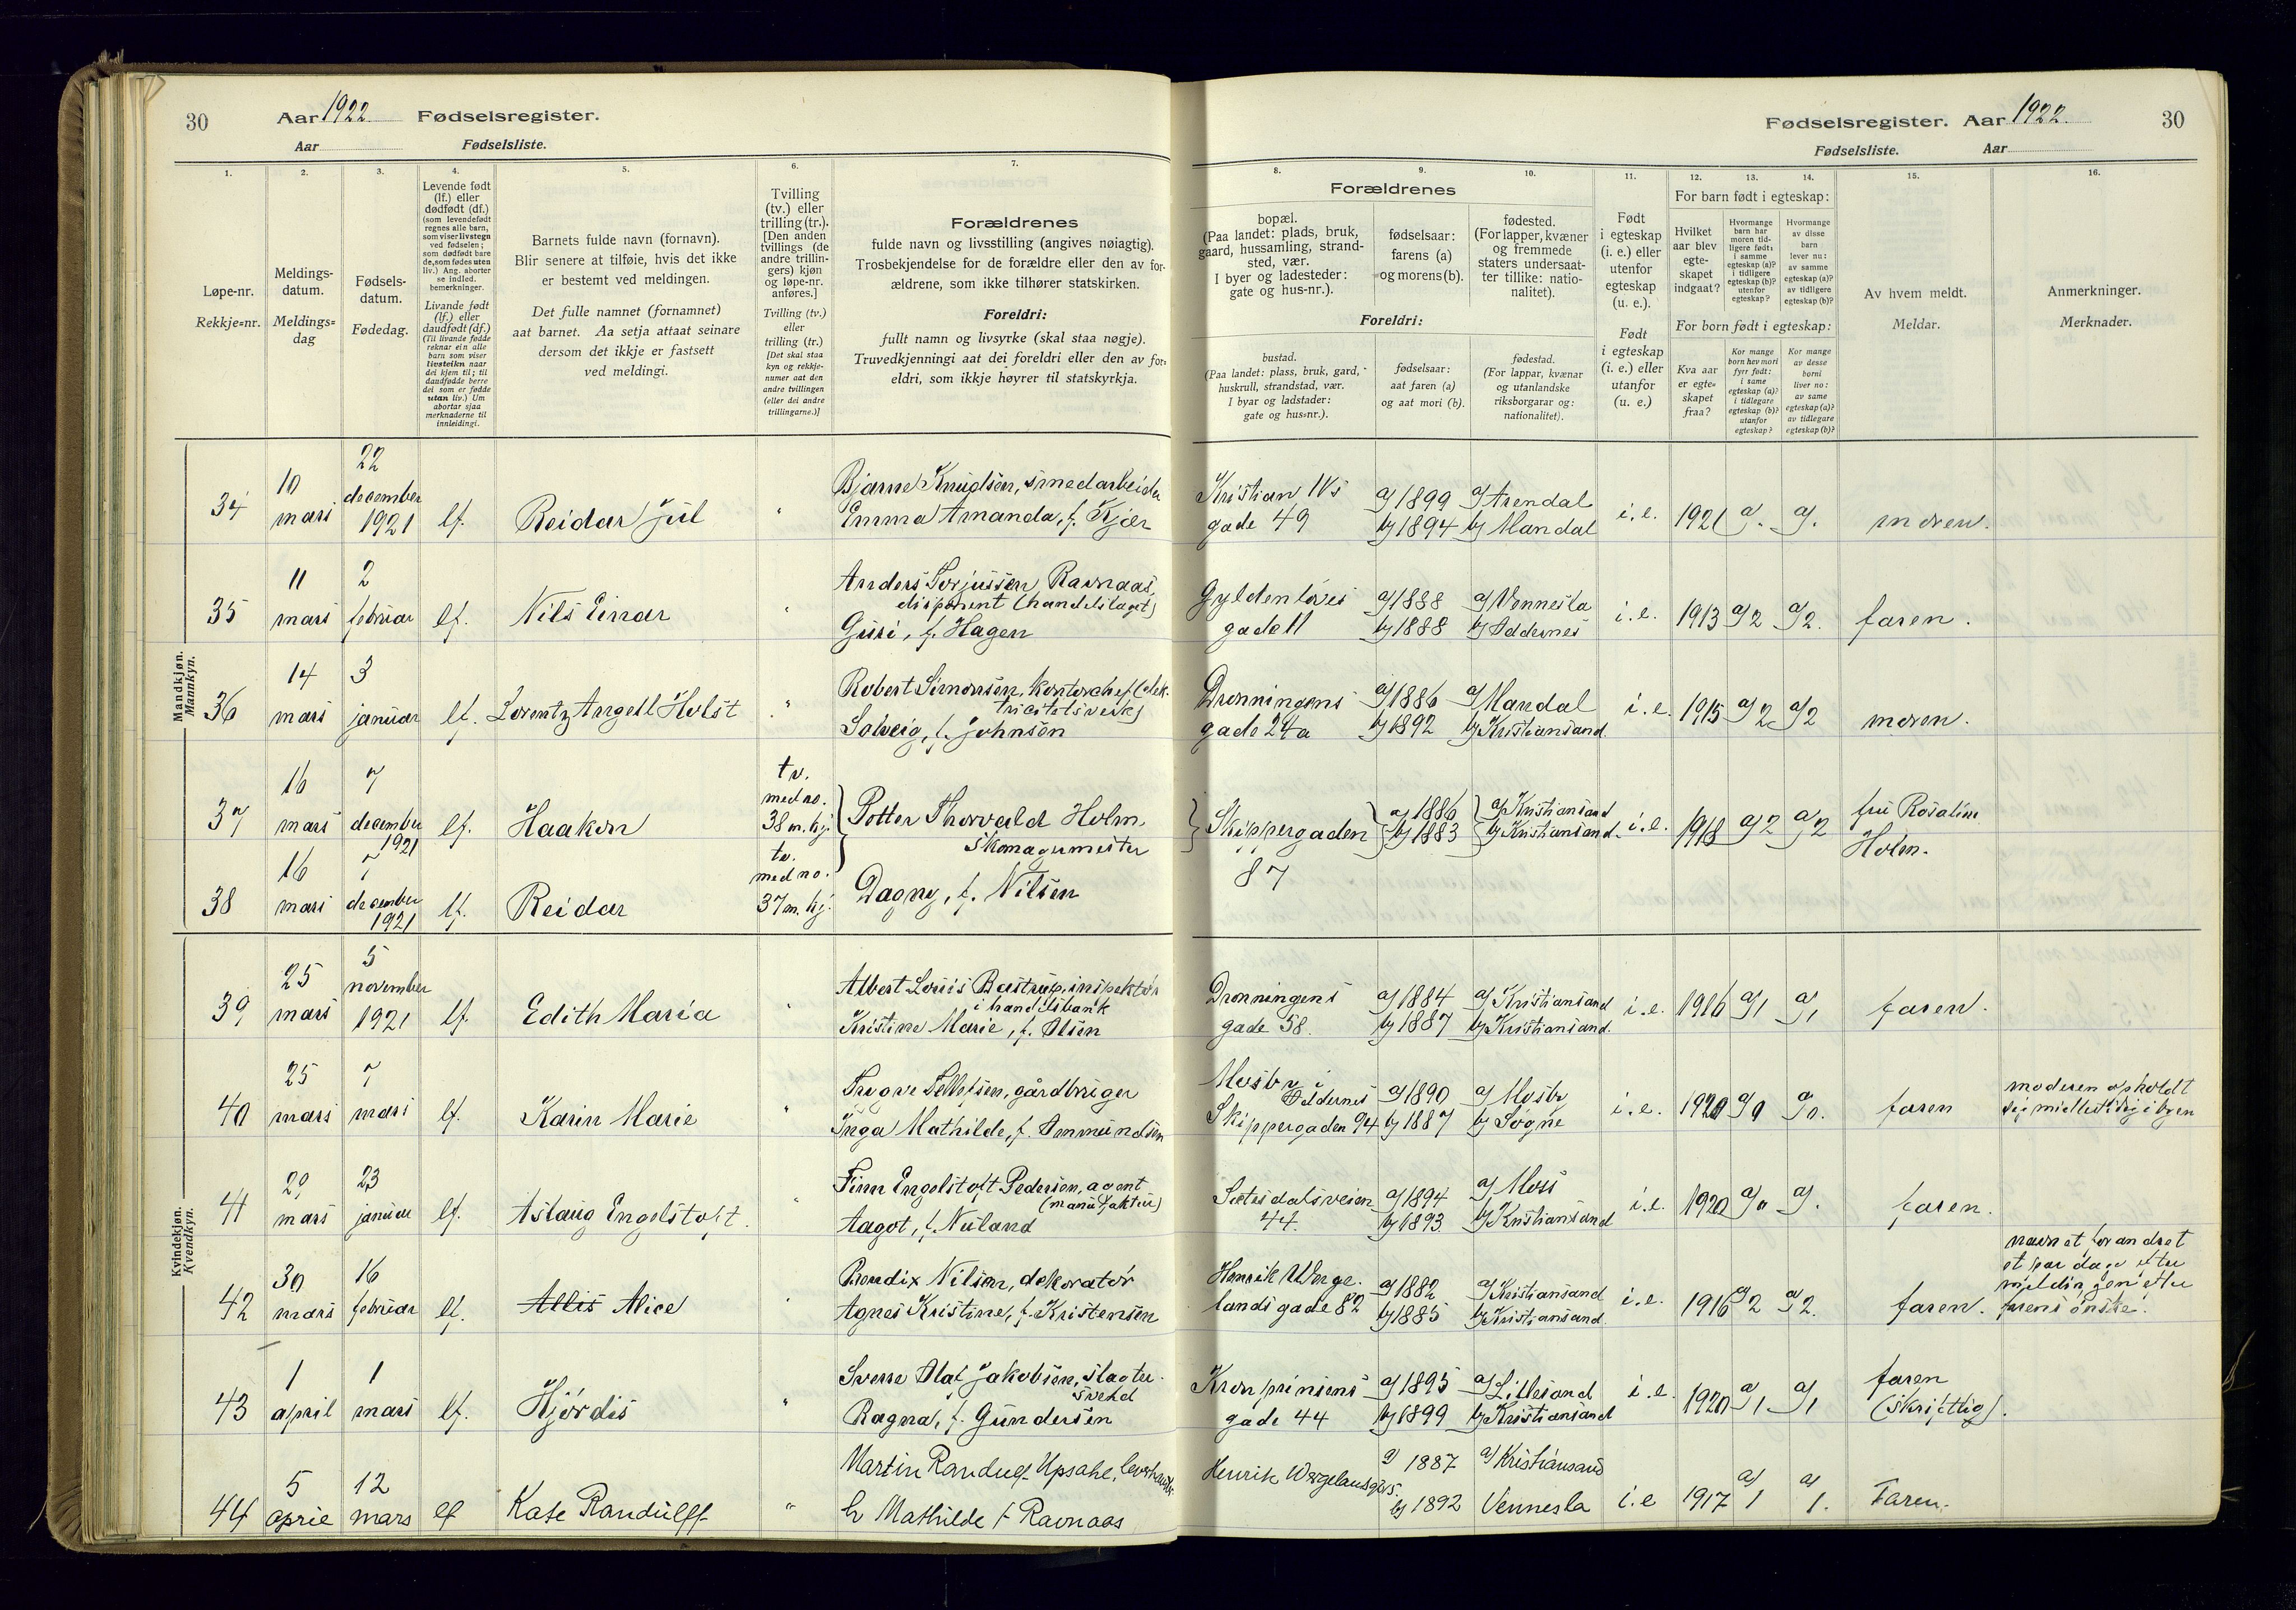 30
Aar 1922. Fødselsregister.
Aar Fødselsliste.
1. 2. 3. 4. 5. 6. 7.
Løpe-nr.
Rekkje=nr.
Meldings-
datum.
Meldings=
dag
Fødsels-
datum.
Fødedag.
Levende født
(lf.) eller
dødfødt (df.)
(som levendefødt
regnes alle barn,
som viser livstegn
ved fødselen;
som dødfødt bare
de, som fødes uten
liv.) Ang. aborter
se indled.
bemerkninger.
Livande født
(lf.) eller
daudfødt (df.)
(Til livande fødde
reknar ein alle
barn som viser
livsteikn naar
dei kjem til; til
daudfødde berre
dei som er fødde
utan liv.) Um
abortar sjaa
merknaderne til
innleidingi.
Barnets fulde navn (fornavn).
Blir senere at tilføie, hvis det ikke
er bestemt ved meldingen.
Det fulle namnet (fornamnet)
aat barnet. Aa setja attaat seinare
dersom det ikkje er fastsett
ved meldingi.
Tvilling
(tv.) eller
trilling (tr.).
[Den anden
tvillings (de
andre trillin-
gers) kjøn
og løpe-nr.
anføres.]
Tvilling (tv.)
eller
trilling (tr.)
[Det skal staa
kyn og rekkje-
numer aat den
andre tvillingen
(eller dei andre
trillingarne.)]
Forældrenes
fulde navn og livsstilling (angives nøiagtig).
Trosbekjendelse for de forældre eller den av for-
ældrene, som ikke tilhører statskirken.
Foreldri:
fullt namn og livsyrke (skal staa nøgje).
Truvedkjenningi aat dei foreldri eller den av for-
eldri, som ikkje høyrer til statskyrkja.
Mandkjøn.
Mannkyn.
34 10 mars 22 december 1921 lf. Reidar Juul " Bjarne Knudsen, smedarbeider
Emma Amanda, f. Kjær
35 11 mars 2 februar lf. Nils Einar " Anders Torjussen Ravnaas,
disponent (handelslaget)
Guri, f. Hagen
36 14 mars 3 januar lf. Lorentz Angell Holst " Robert Simonsen, kontorchef (elek-
tricitetsverk)
Solveig, f. Johnsen
37 16 mars 7 december 1921 lf. Haakon tv. med no. 38 m. kj. Petter Thorvald Holm,
skomagermester
38 16 mars 7 december 1921 lf. Reidar tv. med no. 37 m. kj. Dagny, f. Nilsen
Kvindekjøn.
Kvendkyn.
39 25 mars 5 november 1921 lf. Edith Maria " Albert Louis Bastrup, inspektør
i handelsbank
Kristine Marie, f. Olsen
40 25 mars 7 mars lf. Karin Marie " Trygve Tellefsen, gårdbruger
Inga Mathilde, f. Ommundsen
41 29 mars 23 januar lf. Aslaug Engelstoft. " Finn Engelstoft Pedersen, agent
(manufaktur)
Aagot, f. Nuland
42 30 mars 16 februar lf. Allis Alice " Bendix Nilsen, dekoratør
Agnes Kristine, f. Kristensen
43 1 april 1 mars lf. Hjördis " Sverre Olaf Jakobsen, slagter-
svend
Ragna, f. Gundersen
44 5 april 12 mars lf Kate Randulff " Martin Randulf Upsahl,
h Mathilde f Ravnaas
Fødselsregister. Aar 1922. 30
Fødselsliste. Aar
8. 9. 10. 11. 12. 13. 14. 15. 16.
Forældrenes
bopæl.
(Paa landet: plads, bruk,
gaard, hussamling, strand-
sted, vær.
I byer og ladesteder:
gate og hus-nr.).
fødselsaar:
farens (a)
og morens (b).
fødested.
(For lapper, kvæner
og fremmede
staters undersaat-
ter tillike: natio-
nalitet).
Foreldri:
bustad.
(Paa landet: plass, bruk, gard,
huskrull, strandstad, vær.
I byar og ladstader:
gate og hus=nr.).
fødselsaar:
aat faren (a)
og aat mori (b).
fødestad.
(For lappar, kvænar
og utanlandske
riksborgarar og:
nationalitet).
Født
i egteskap
(i. e.) eller
utenfor
egteskap
(u. e.).
Født
i egteskap
(i. e.) eller
utanfor
(u. e.).
For barn født i egteskap:
Hvilket
aar blev
egte-
skapet
indgaat?
Hvormange
barn har
moren tid-
ligere født:
i samme
egteskap (a)?
i tidligere
egteskap (b)?
utenfor
egteskap?
Hvormange
av disse
barn
lever nu:
av samme
egteskap (a)?
av tidligere
egteskap (b)?
For born født i egteskap:
Kva aar
er egte=
skapet
fraa?
Kor mange
born hev mori
fyrr født:
i same
egteskap (a)?
i tidlegare
egteskap (b)?
utanfor
egteskap?
Kor mange
av desse
borni
liver no:
av same
egteskap (a)?
av tidlegare
egteskap (b)?
Av hvem meldt.
Meldar.
Anmerkninger.
Merknader.
Kristian IVs gade 49 a) 1899 b) 1894 a) Arendal b) Mandal i. e. 1921 a). a). moren.
Gyldenløves gade 11 a) 1888 b) 1888 a) Vennesla b) Oddernes i. e. 1913 a) 2 a) 2. faren.
Dronningens gade 24a a) 1886 b) 1892 a) Mandal b) Kristiansand i. e. 1915 a) 2 a) 2 moren.
Skippergaden 87 a) 1886 b) 1883 a) Kristiansand b) Kristiansand i. e. 1918 a) 2 a) 2 fru Rosaline
Holm.
Dronningens gade 58. a) 1884 b) 1887 a) Kristiansand b) Kristiansand. i. e. 1916 a) 1 a) 1 faren.
Mosby i Oddernes Skippergaden 94 a) 1890 b) 1887 a) Mosby b) Søgne i. e. 1920 a) 0 a) 0. faren moderen opholdt
sig midlertidig i byen
Setesdalsveien 44. a) 1894 b) 1893 a) Moss b) Kristiansand i. e. 1920 a) 0 a). faren.
Henrik Werge-
landsgade 82 a) 1882 b) 1885 a) Kristiansand b) Kristiansand i. e. 1916 a) 2 a) 2. faren. navnet forandret
et par dage efter
meldingen efter
farens ønske.
Kronprinsens gade 44 a) 1895 b) 1899 a) Lillesand b) Kristiansand i. e. 1920 a) 1 a) 1 faren
(skriftlig).
Henrik a) 1887 b) 1892 a) Kristiansand Vennesla i. e 1917 a) 1 a) 1. Faren.